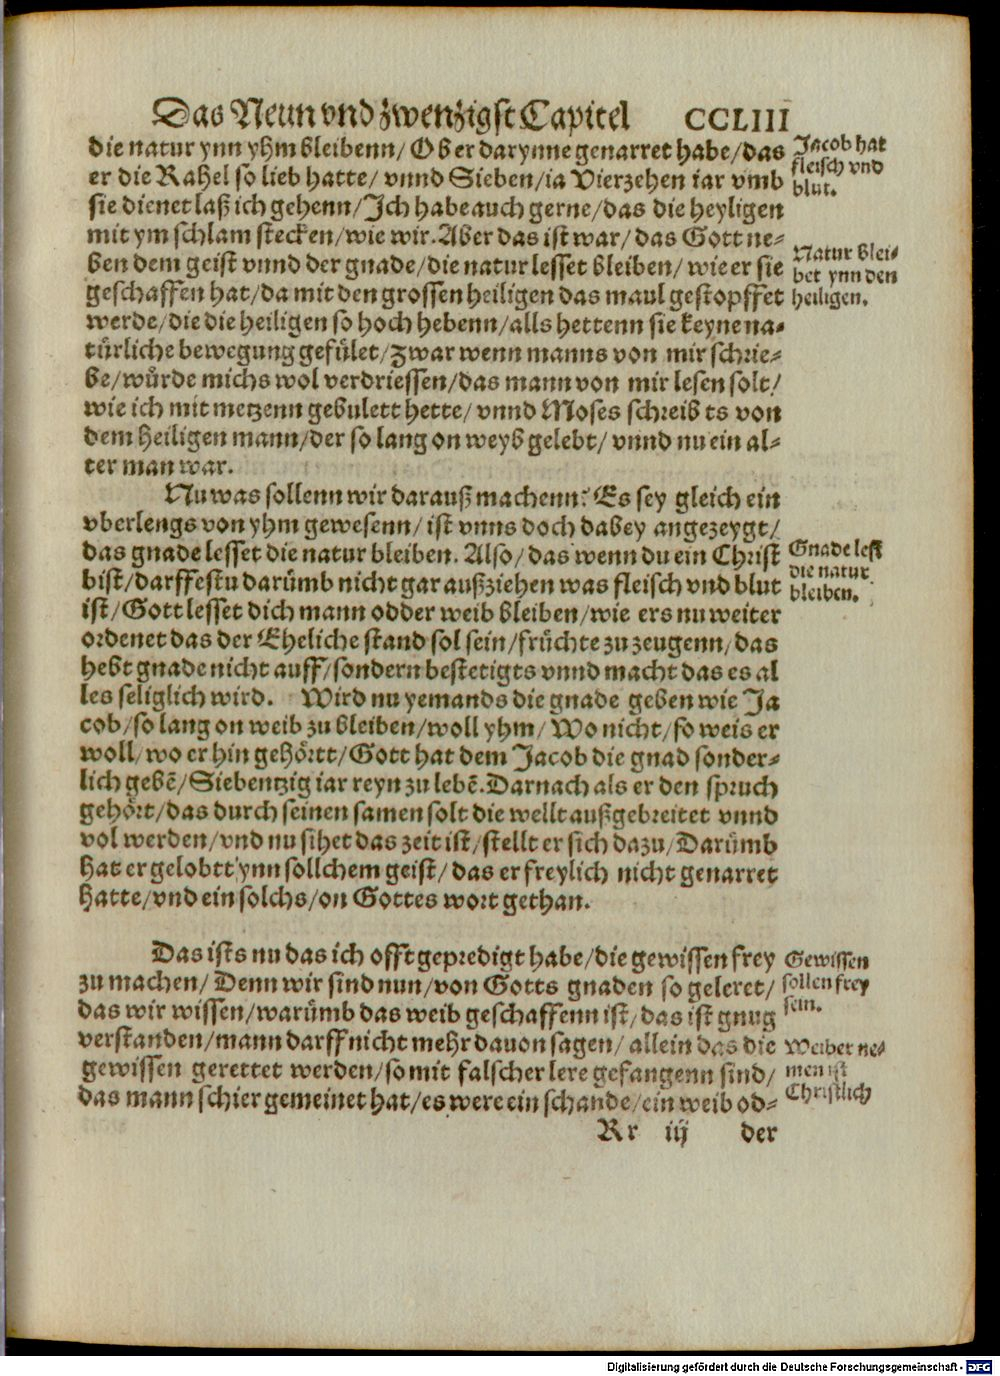 Das Neun vnd zwenzigst Capitel CCLIII
die natur ynn yhm bleibenn/ Ob er darynne genarret habe/das
er die Rahel so lieb hatte/ vnnd Sieben/ia Vierzehen iar vmb
sie dienet laß ich gehenn/Ich habe auch gerne/das die heyligen
mit ym schlam stecken/wie wir. Aber das ist war/ das Gott ne-
ben dem geist vnnd der gnade/die natur lesset bleiben/ wie er sie
geschaffen hat/da mit den grossen heiligen das maul gestopffet
werde/die die heiligen so hoch hebenn/alls hettenn sie keyne na-
türliche bewegung gefület/zwar wenn manns von mir schrie-
be/würde michs wol verdriessen/das mann von mir lesen solt/
wie ich mit metzenn gebulett hette/ vnnd Moses schreibts von
dem heiligen mann/der so lang on weyb gelebt/ vnnd nu ein al-
ter man war.
Jacob hat
fleisch vnd
blut.
Natur blei-
bet ynn den
heiligen.
Nu was sollenn wir darauß machenn? Es sey gleich ein
vberlengs von yhm gewesenn/ ist vnns doch dabey angezeygt/
das gnade lesset die natur bleiben. Also/das wenn du ein Christ
bist/darffestu darümb nicht gar außziehen was fleisch vnd blut
ist/Gott lesset dich mann odder weib bleiben/wie ers nu weiter
ordenet das der Eheliche stand sol sein/früchte zu zeugenn/das
hebt gnade nicht auff/sondern bestetigts vnnd macht das es al
les seliglich wird. Wird nu yemands die gnade geben wie Ja
cob/so lang on weib zu bleiben/woll yhm/ Wo nicht/so weis er
woll/wo er hin gehörtt/Gott hat dem Jacob die gnad sonder-
lich gebē/Siebentzig iar reyn zu lebē. Darnach als er den spruch
gehört/das durch seinen samen solt die wellt außgebreitet vnnd
vol werden/vnd nu sihet das zeit ist/stellt er sich dazu/Darümb
hat er gelobtt ynn sollchem geist/das er freylich nicht genarret
hatte/vnd ein solchs/on Gottes wort gethan.
Gnade lest
die natur
bleiben.
Das ists nu das ich offt gepredigt habe/die gewissen frey
zu machen/ Denn wir sind nun/von Gotts gnaden so geleret/
das wir wissen/warümb das weib geschaffenn ist/das ist gnug
verstanden/mann darff nicht mehr dauon sagen/ allein das die
gewissen gerettet werden/so mit falscher lere gefangenn sind/
das mann schier gemeinet hat/es were ein schande/ein weib od-
Gewissen
sollen frey
sein.
Weiber ne-
men ist
Christlich
Rr iij der
Digitalisierung gefördert durch die Deutsche Forschungsgemeinschaft - DFG